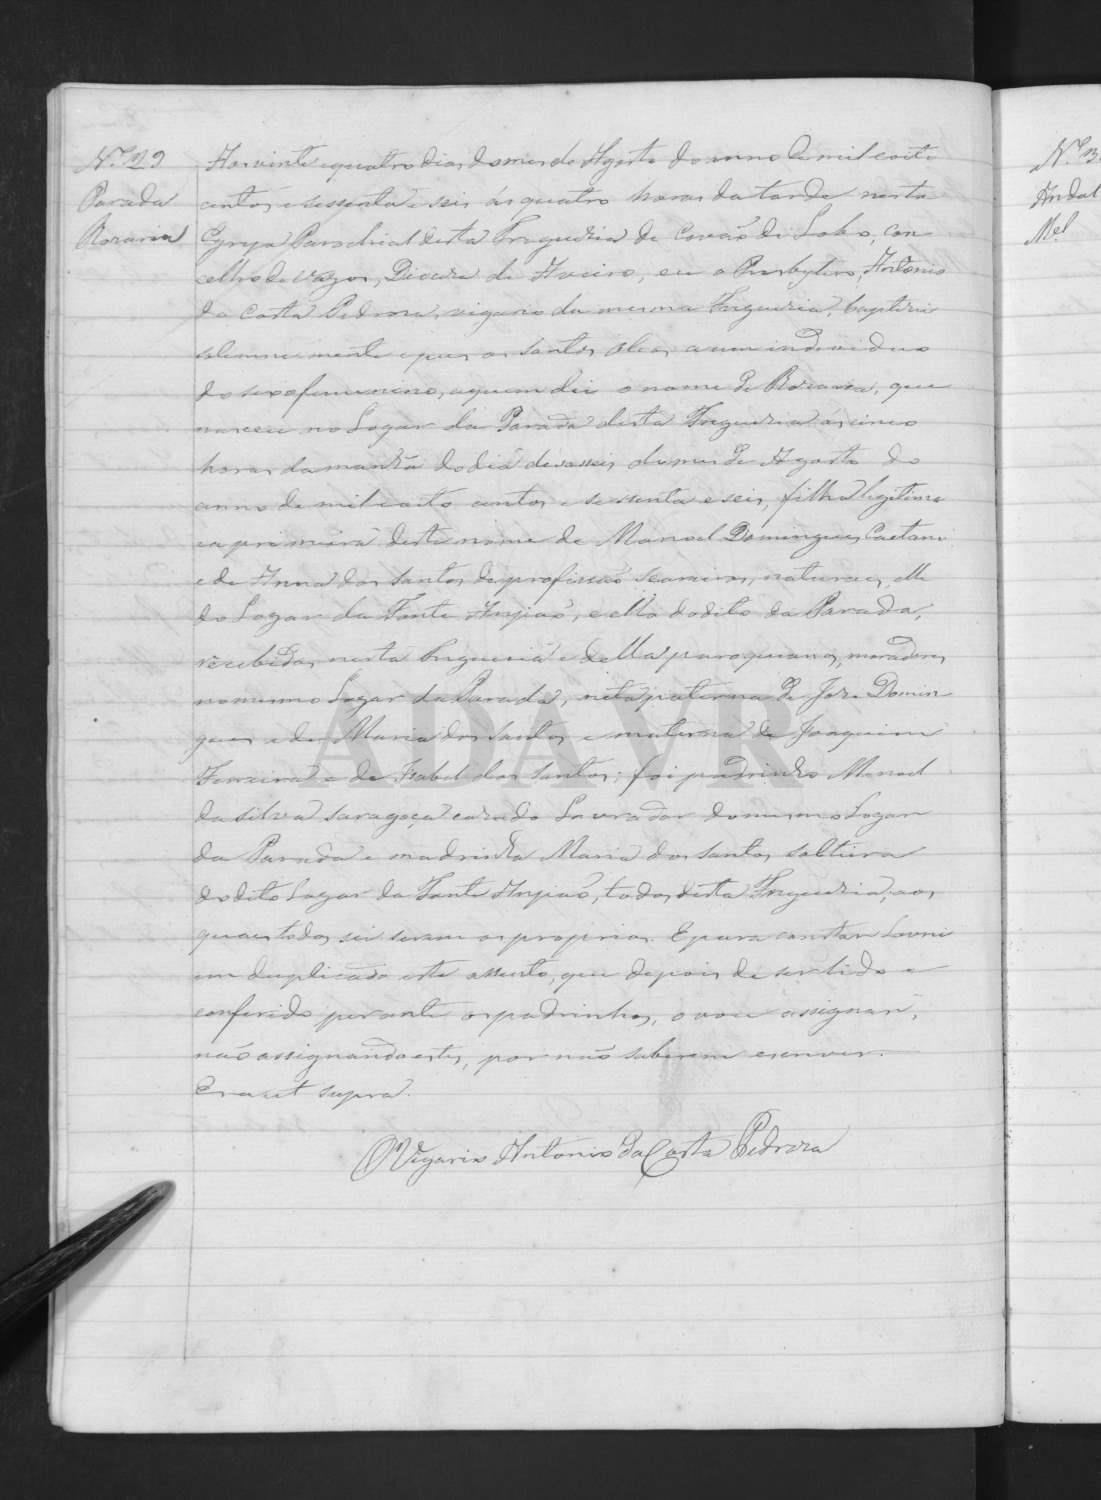 N.º 29
Parada
Rozaria
Aos vinte e quatro dias do mes de Agosto do anno de mil e oito
centos e sessenta e seis ás quatro horas da tarde nesta
Egreja Parochial desta Freguezia de Covão do Lobo, con
celho de Vagos, Diocese de Aveiro, eu o Presbytero, Antonio
da Costa Pedroza, vigario da mesma Freguezia, baptizei
solemnemente e puz os santos oleos a um individuo
do sexo femenino, a quem dei o nome de Rozaria, que
nasceu no Logar da Parada desta Freguezia ás cinco
horas da manhã do dia desasseis do mes de Agosto do
anno de mil e oito centos e sessenta e seis, filha legitima
e a primeira deste nome de Manoel Domingues Caetano
e de Anna dos Santos de profissão Seareiros, naturaes, elle
do Logar da Fonte Anjião, e ella do dito da Parada,
recebidos nesta Freguezia e della paroquianos, moradores
no mesmo Logar da Parada, neta paterna de Joze Domin
gues e de Maria dos Santos e materna de Joaquim
Ferreira e de Izabel dos Santos; foi padrinho Manoel
da Silva Saragoça cazado Lavrador do mesmo Logar
da Parada e madrinha Maria dos Santos solteira
do dito Logar da Fonte Anjião, todos desta Freguezia, aos
quaes todos sei serem os proprios. E para constar Lavrei
em duplicado este assento, que depois de ser lido e
conferido perante os padrinhos, o vou assignar,
não assignando estes, por não saberem escrever.
Era ut supra.
O Vigario Antonio da Costa Pedroza
N.º 3
Andal
Mel
ADAVR